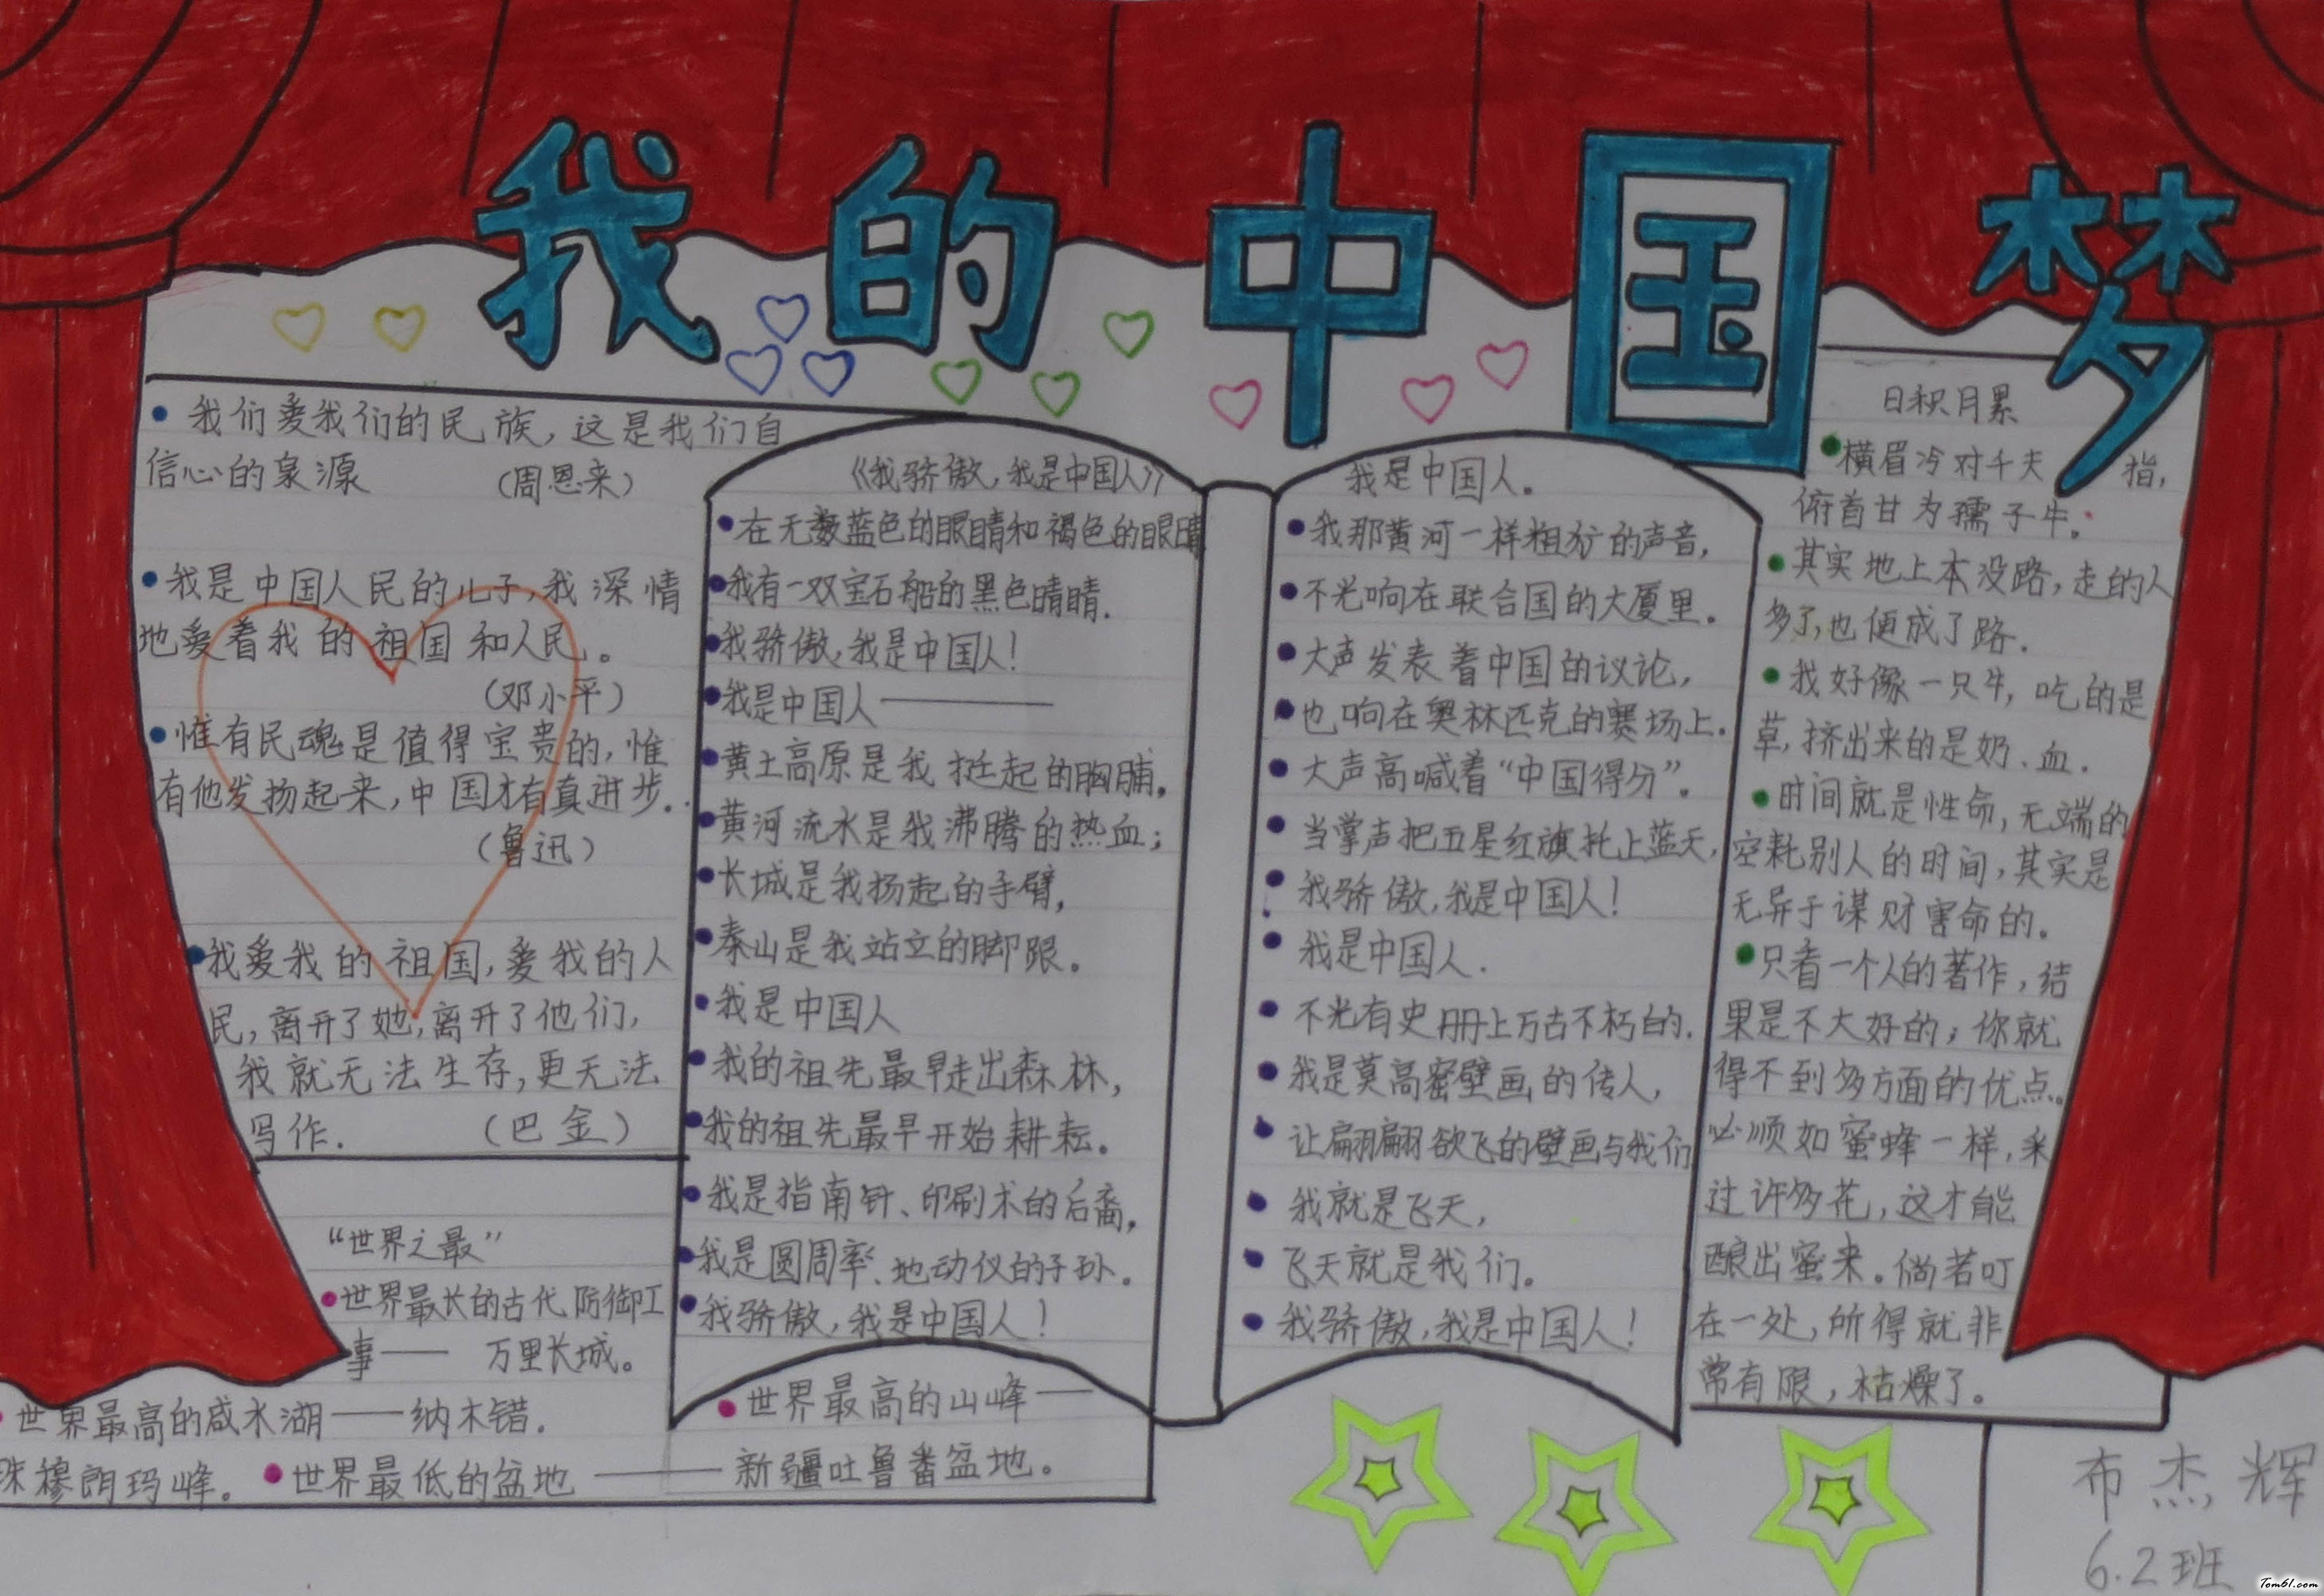 我的中国梦
我们爱我们的民族,这是我们自
信心的泉源 (周恩来)
我是中国人民的儿子,我深情
地爱着我的祖国和人民。
(邓小平)
惟有民魂是值得宝贵的,惟
有他发扬起来,中国才有真进步。
(鲁迅)
我爱我的祖国,爱我的人
民,离开了她,离开了他们,
我就无法生存,更无法
写作. (巴金)
“世界之最”
世界最长的古代防御工
事—— 万里长城。
世界最高的咸水湖——纳木错.
世界最高的山峰——
珠穆朗玛峰。世界最低的盆地——新疆吐鲁番盆地。
《我骄傲,我是中国人》
在无数蓝色的眼睛和褐色的眼睛
我有一双宝石船的黑色睛睛.
我骄傲,我是中国人!
我是中国人——
黄土高原是我挺起的胸脯,
黄河流水是我沸腾的热血;
长城是我扬起的手臂,
泰山是我站立的脚跟。
我是中国人
我的祖先最早走出森林,
我的祖先最早开始耕耘。
我是指南针、印刷术的后裔,
我是圆周率、地动仪的子孙.
我骄傲,我是中国人!
我是中国人。
我那黄河一样粗犷的声音,
不光响在联合国的大厦里。
大声发表着中国的议论,
也响在奥林匹克的赛场上.
大声高喊着“中国得分”。
当掌声把五星红旗托上蓝天,
我骄傲,我是中国人!
我是中国人.
不光有史册上万古不朽的.
我是莫高密壁画的传人,
让翩翩欲飞的壁画与我们
我就是飞天,
飞天就是我们。
我骄傲,我是中国人!
日积月累
横眉冷对千夫指,
俯首甘为孺子牛。
其实地上本没路,走的人
多了,也便成了路.
我好像一只牛,吃的是
草,挤出来的是奶、血.
时间就是性命,无端的
空耗别人的时间,其实是
无异于谋财害命的。
只看一个人的著作,结
果是不大好的;你就
得不到多方面的优点。
必顺如蜜蜂一样,采
过许多花,这才能
酿出蜜来。倘若叮
在一处,所得就非
常有限,枯燥了。
布杰辉
6.2班
Tom61.com